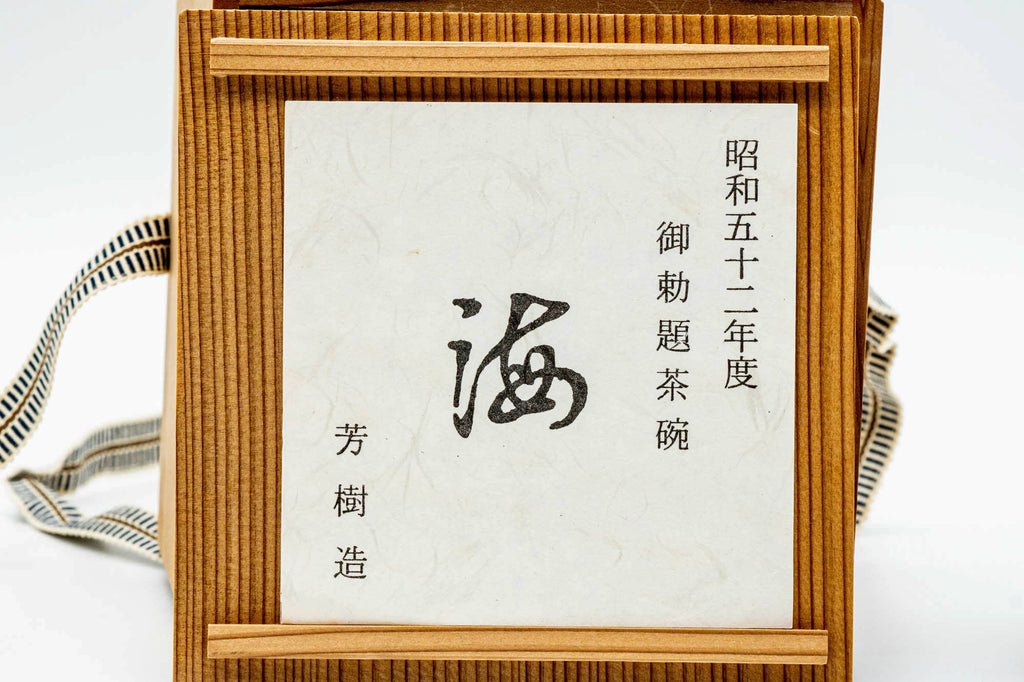 昭和五十二年度
御勅題茶碗
海
芳樹造